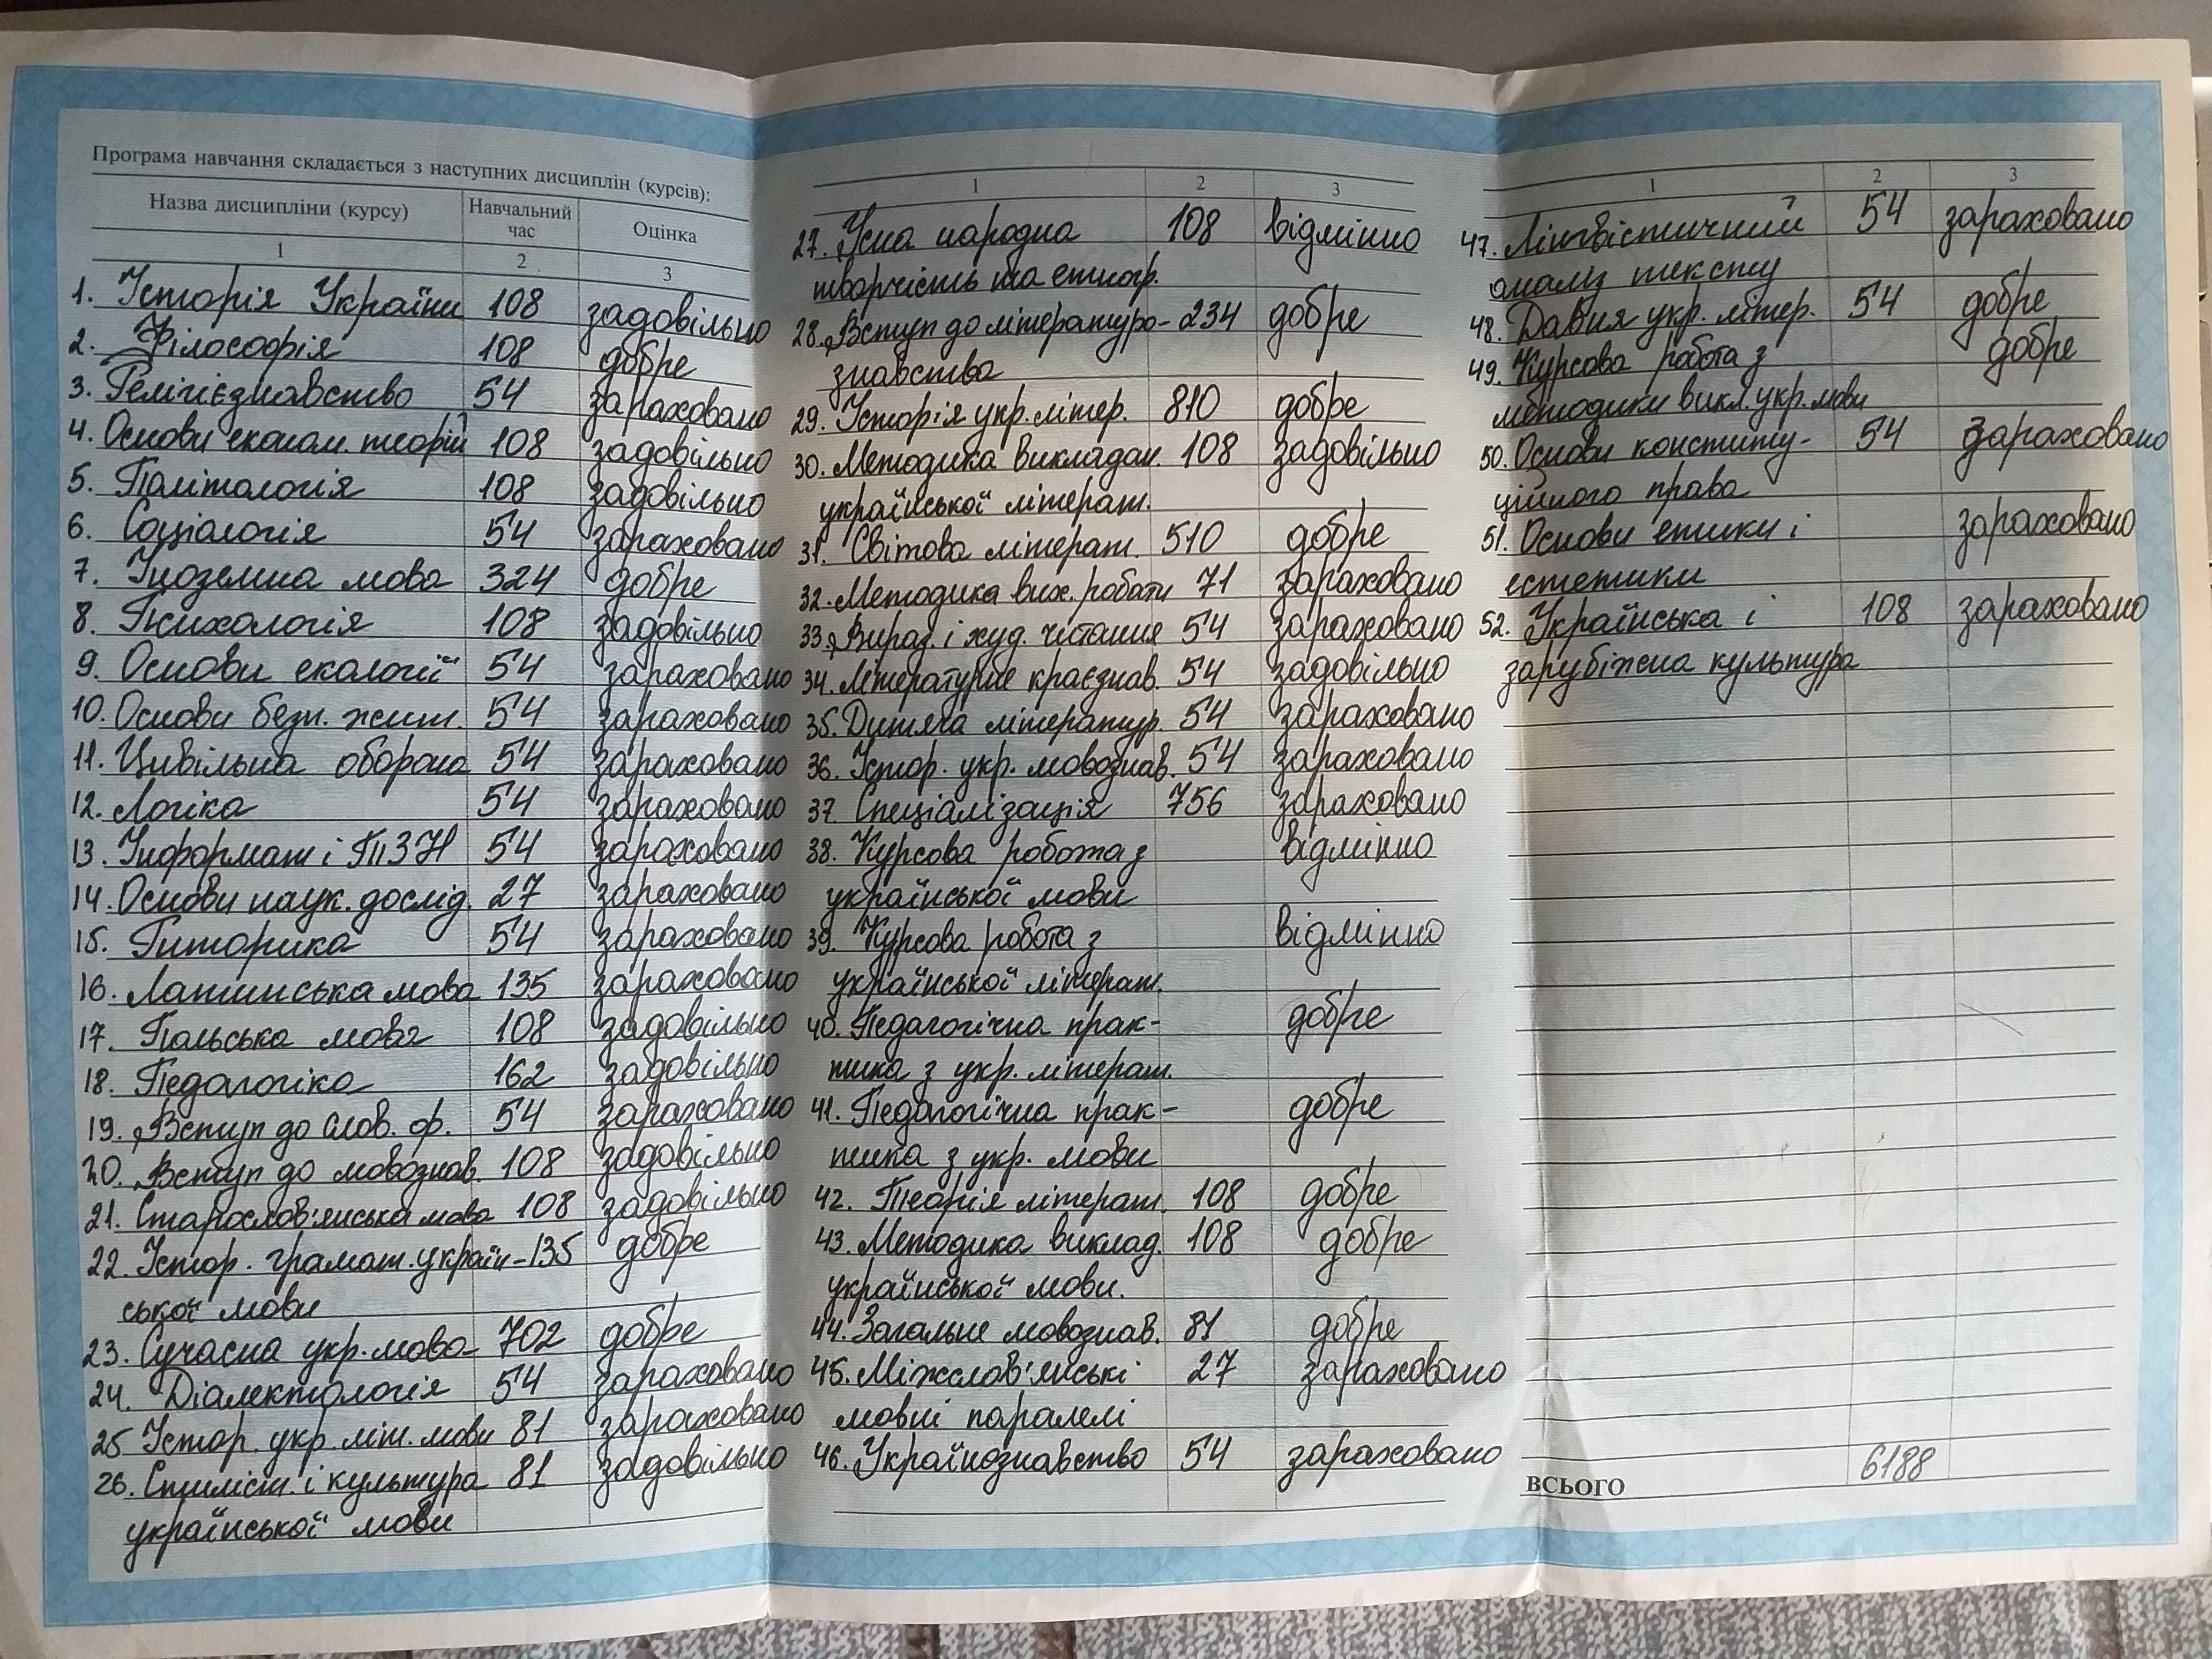 Програма навчання складається з наступних дисциплін (курсів):
Назва дисципліни (курсу) Навчальний час Оцінка
1 2 3
1. Історія України 108 задовільно
2. Філософія 108 добре
3. Релігієзнавство 54 зараховано
4. Основи економ. теорій 108 задовільно
5. Політологія 108 задовільно
6. Соціологія 54 зараховано
7. Іноземна мова 324 добре
8. Психологія 108 задовільно
9. Основи екології 54 зараховано
10. Основи безп. жит. 54 зараховано
11. Цивільна оборона 54 зараховано
12. Логіка 54 зараховано
13. Інформат і ТЗН 54 зараховано
14. Основи наук. дослід. 27 зараховано
15. Риторика 54 зараховано
16. Латинська мова 135 зараховано
17. Польська мова 108 задовільно
18. Педагогіка 162 задовільно
19. Вступ до слов. ф. 54 зараховано
20. Вступ до мовознав. 108 задовільно
21. Старослов'янська мова 108 задовільно
22. Істор. грамат. україн- 135 добре
ської мови
23. Сучасна укр. мова 702 добре
24. Діалектологія 54 зараховано
25 Істор. укр. літ. мови 81 зараховано
26. Стиліст. і культура 81 задовільно
української мови
1 2 3
27. Усна народна 108 відмінно
творчість та етногр.
28. Вступ до літературо- 234 добре
знавства
29. Історія укр. літер. 810 добре
30. Методика викладан. 108 задовільно
української літерат.
31. Світова літерат. 510 добре
32. Методика вих. роботи 71 зараховано
33. Вираз. і худ. читання 54 зараховано
34. Літературне краєзнав. 54 задовільно
35. Дитяча літератур. 54 зараховано
36. Істор. укр. мовознав. 54 зараховано
37. Спеціалізація 756 зараховано
38. Курсова робота з відмінно
української мови
39. Курсова робота з відмінно
української літерат.
40. Педагогічна прак- добре
тика з укр. літерат.
41. Педагогічна прак- добре
тика з укр. мови
42. Теорія літерат. 108 добре
43. Методика виклад. 108 добре
української мови.
44. Загальне мовознав. 81 добре
45. Міжслов'янські 27 зараховано
мовні паралелі
46. Українознавство 54 зараховано
1 2 3
47. Лінгвістичний 54 зараховано
аналіз тексту
48. Давня укр. літер. 54 добре
49. Курсова робота з добре
методики викл. укр. мови
50. Основи конститу- 54 зараховано
ційного права
51. Основи етики і зараховано
естетики
52. Українська і 108 зараховано
зарубіжна культура
ВСЬОГО 6188